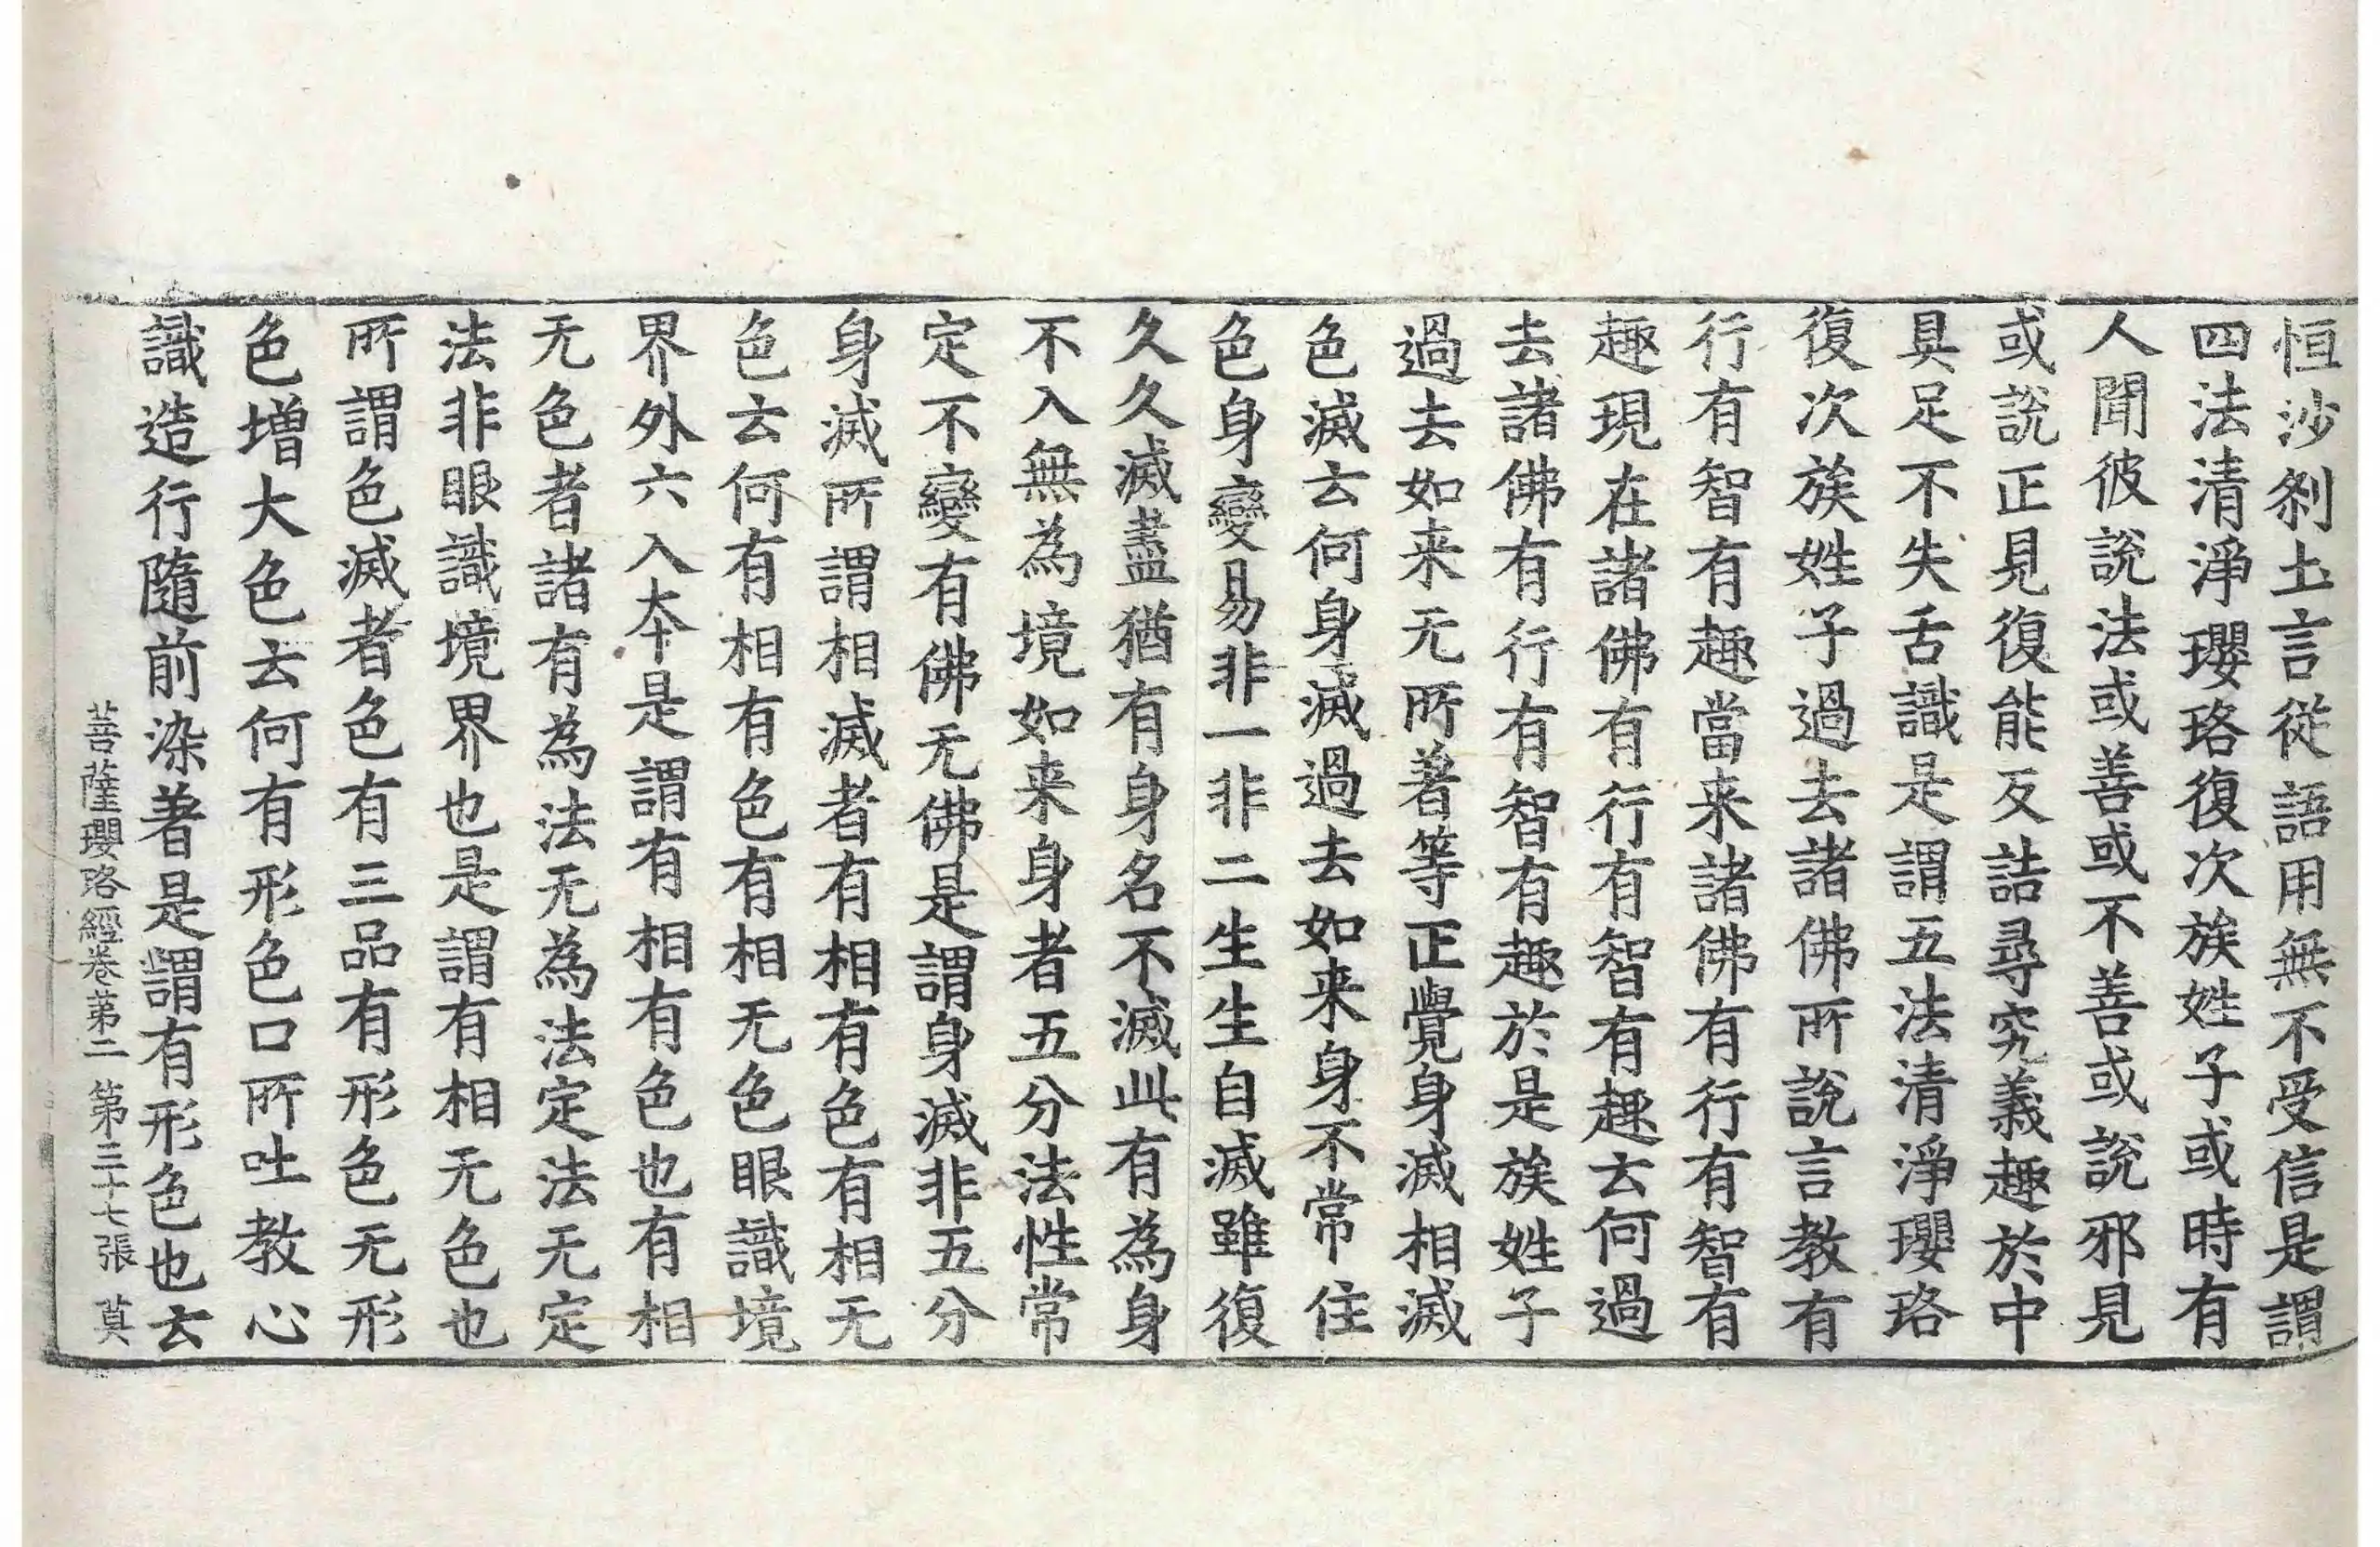 恒沙刹土言從語用無不受信是謂
四法清淨瓔珞復次族姓子或時有
人聞彼說法或善或不善或說邪見
或說正見復能反詰尋究義趣於中
具足不失舌識是謂五法清淨瓔珞
復次族姓子過去諸佛所說言教有
行有智有趣當来諸佛有行有智有
趣現在諸佛有行有智有趣云何過
去諸佛有行有智有趣於是族姓子
過去如来无所著等正覺身滅相滅
色滅云何身滅過去如来身不常住
色身變易非一非二生生自滅雖復
久久滅盡猶有身名不滅此有為身
不入無為境如来身者五分法性常
定不變有佛无佛是謂身滅非五分
身滅所謂相滅者有相有色有相无
色云何有相有色有相无色眼識境
界外六入本是謂有相有色也有相
无色者諸有為法无為法定法无定
法非眼識境界也是謂有相无色也
所謂色滅者色有三品有形色无形
色增大色云何有形色口所吐教心
識造行隨前染著是謂有形色也云
菩薩瓔珞經卷第二 第三十七張 莫